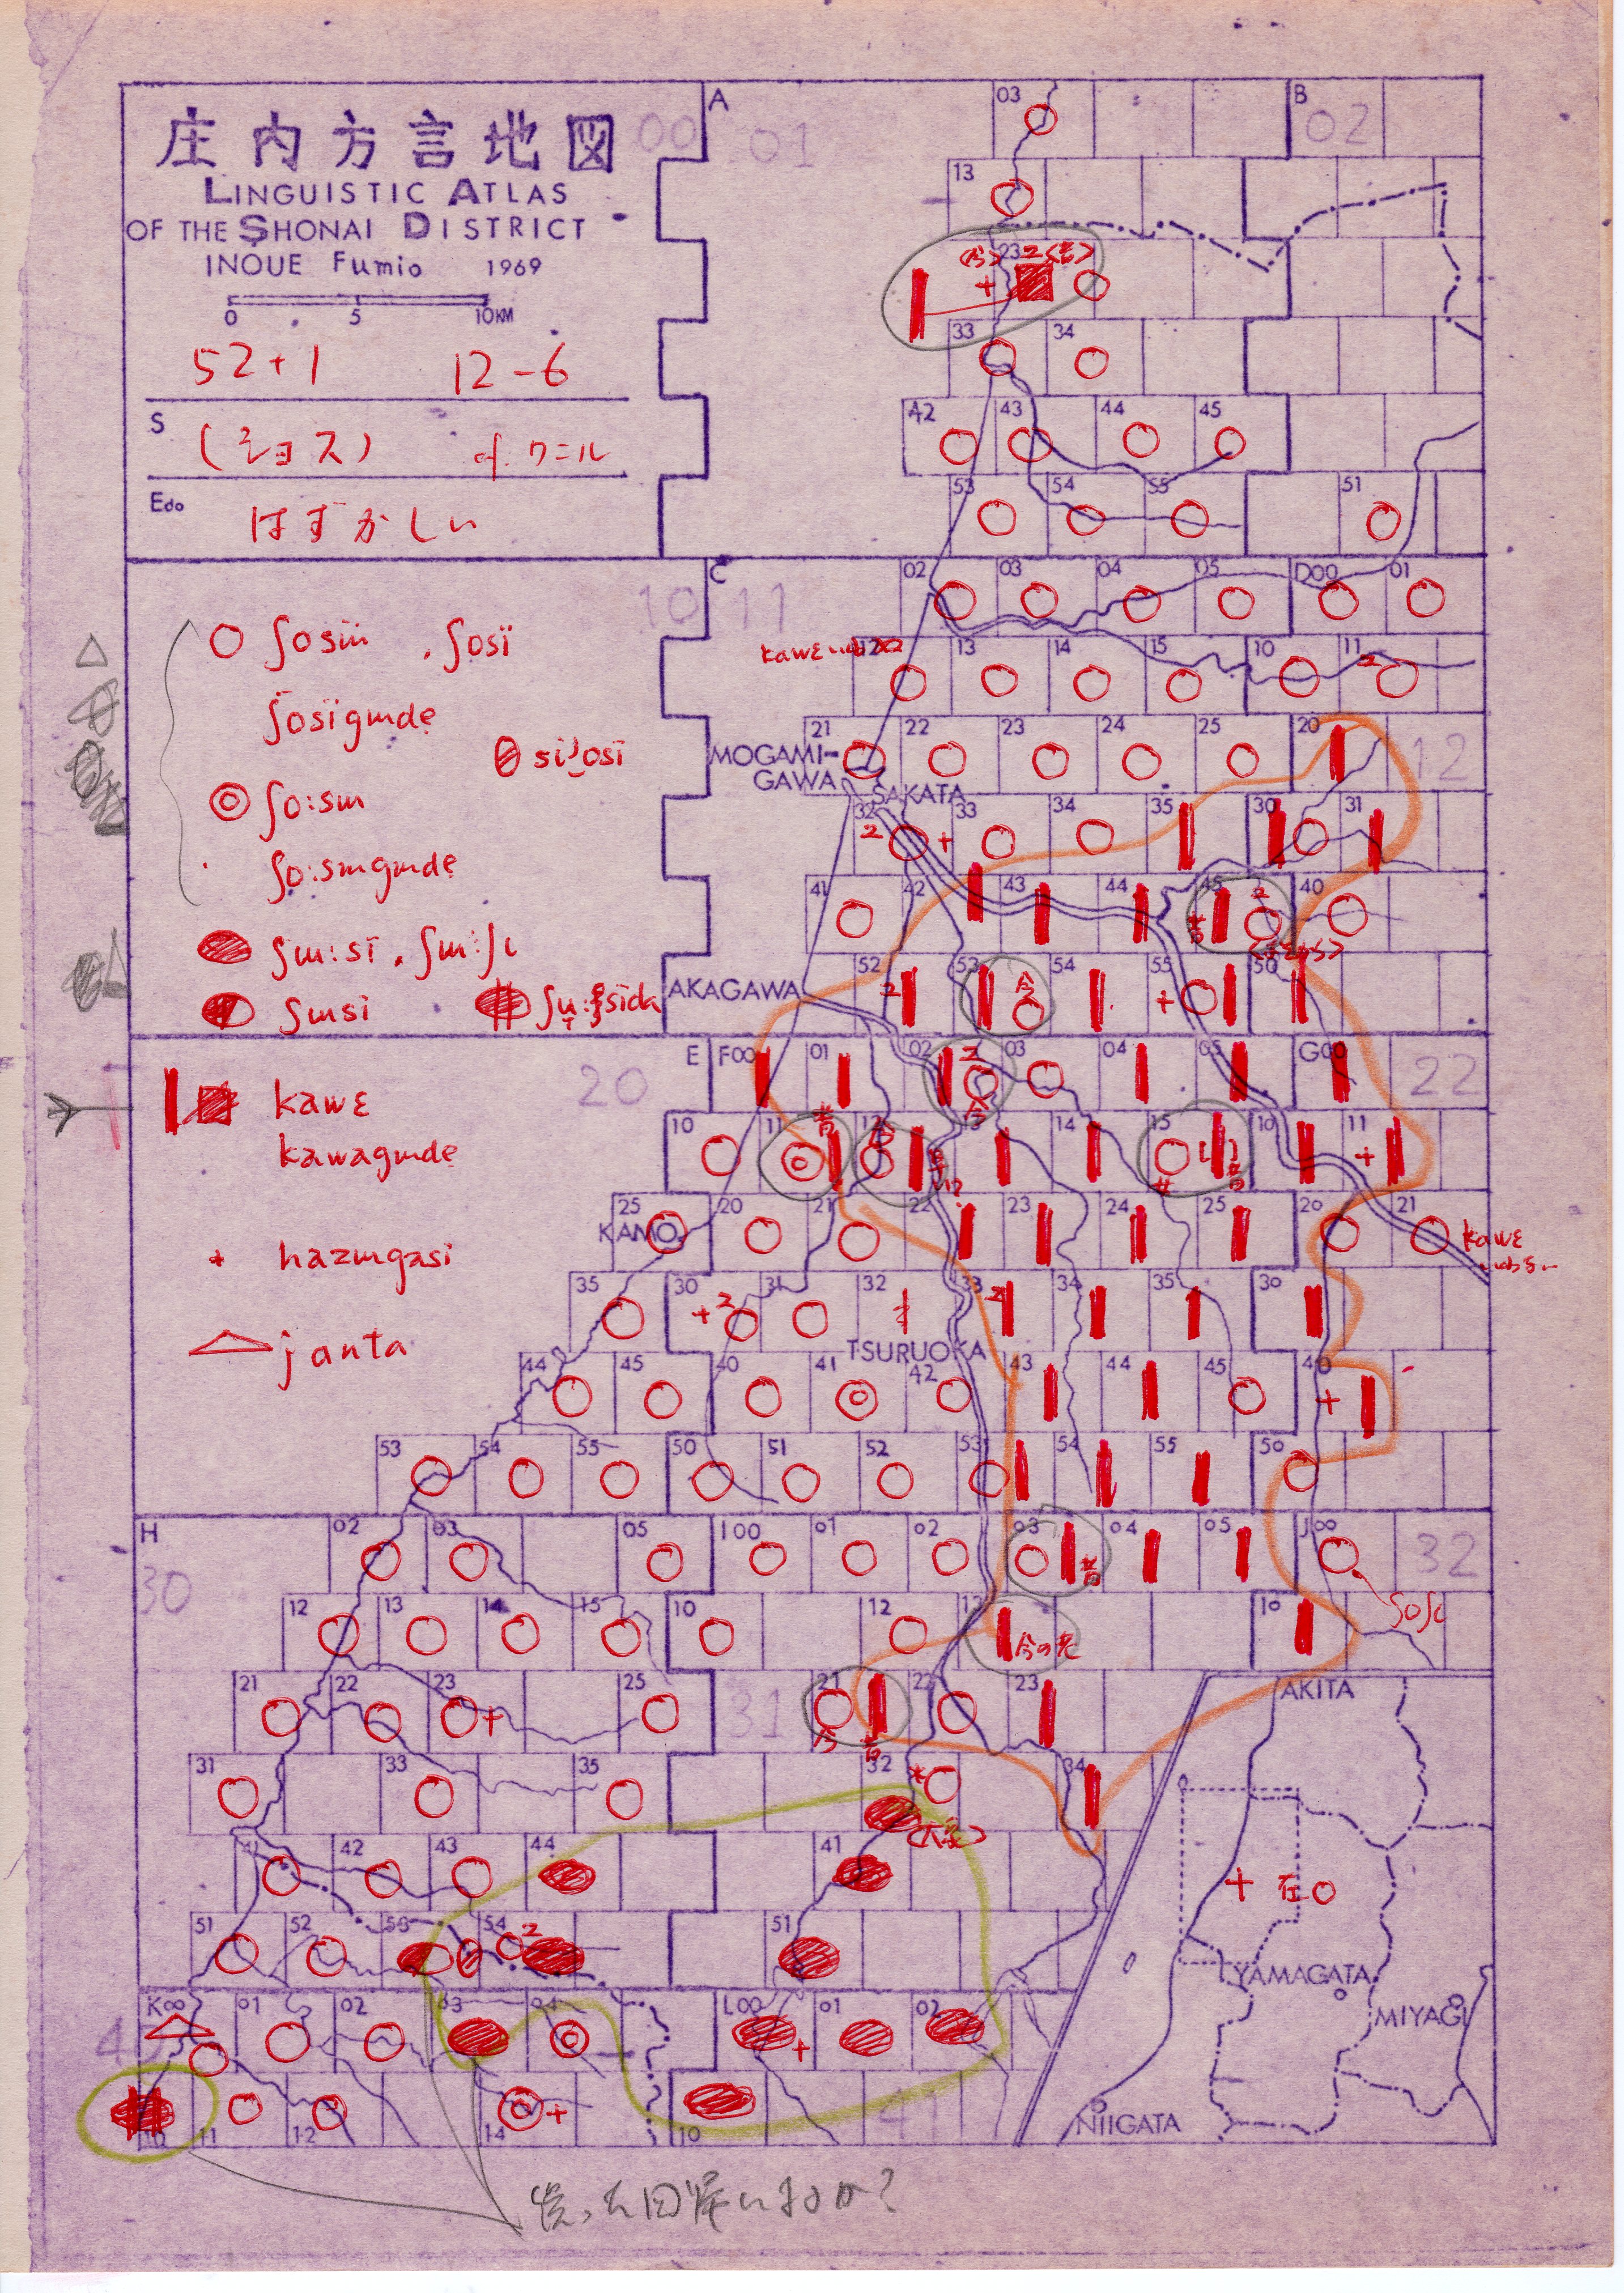 庄内方言地図
LINGUISTIC ATLAS
OF THE SHONAI DISTRICT
INOUE Fumio 1969
0 5 10KM
52+1 12-6
S (ショス) cf. ワニル
Edo はずかしい
00 A 01 03 B 02
13
23 2
33 34
42 43 44 45
53 54 55 51
10 C 11 02 03 04 05 D00 01
kawɛ 12 13 14 15 10 11 2
21 22 23 24 25 20 12
MOGAMI-
GAWA
SAKATA
32 2 + 33 34 35 30 31
41 42 43 44 45 昔 2 40
AKAGAWA 52 2 53 今 54 55 + 50
○ ʃosɯ̈ , ʃosï
ʃosïgɯde
siʲosï
◎ ʃo:sɯ
ʃo:sɯgɯde
ʃɯ:sï , ʃɯ:ʃi
ʃɯsi
kawɛ
kawagɯde
+ hazɯgasi
janta
20 E F00 01 02 2 今 03 04 05 G00 22
10 11 昔 12 今 13 14 15 昔 10 11 +
25 20 21 22 23 24 25 20 21 kawɛ
KAMO
35 30 + 2 31 32 33 2 34 35 30
TSURUOKA
44 45 40 41 42 43 44 45 40 +
53 54 55 50 51 52 53 54 55 50
H 02 03 05 I00 01 02 03 昔 04 05 J00 32
30 12 13 14 15 10 12 13 今の老 10 ʃoʃi
21 22 23 + 25 31 21 今 昔 22 23
AKITA
31 33 35 32 * 34
41 42 43 44 41
+ 在○
51 52 53 54 2 51
YAMAGATA
MIYAGI
NIIGATA
K00 01 02 03 04 L00 + 01 02
10 11 12 14 + 10 41